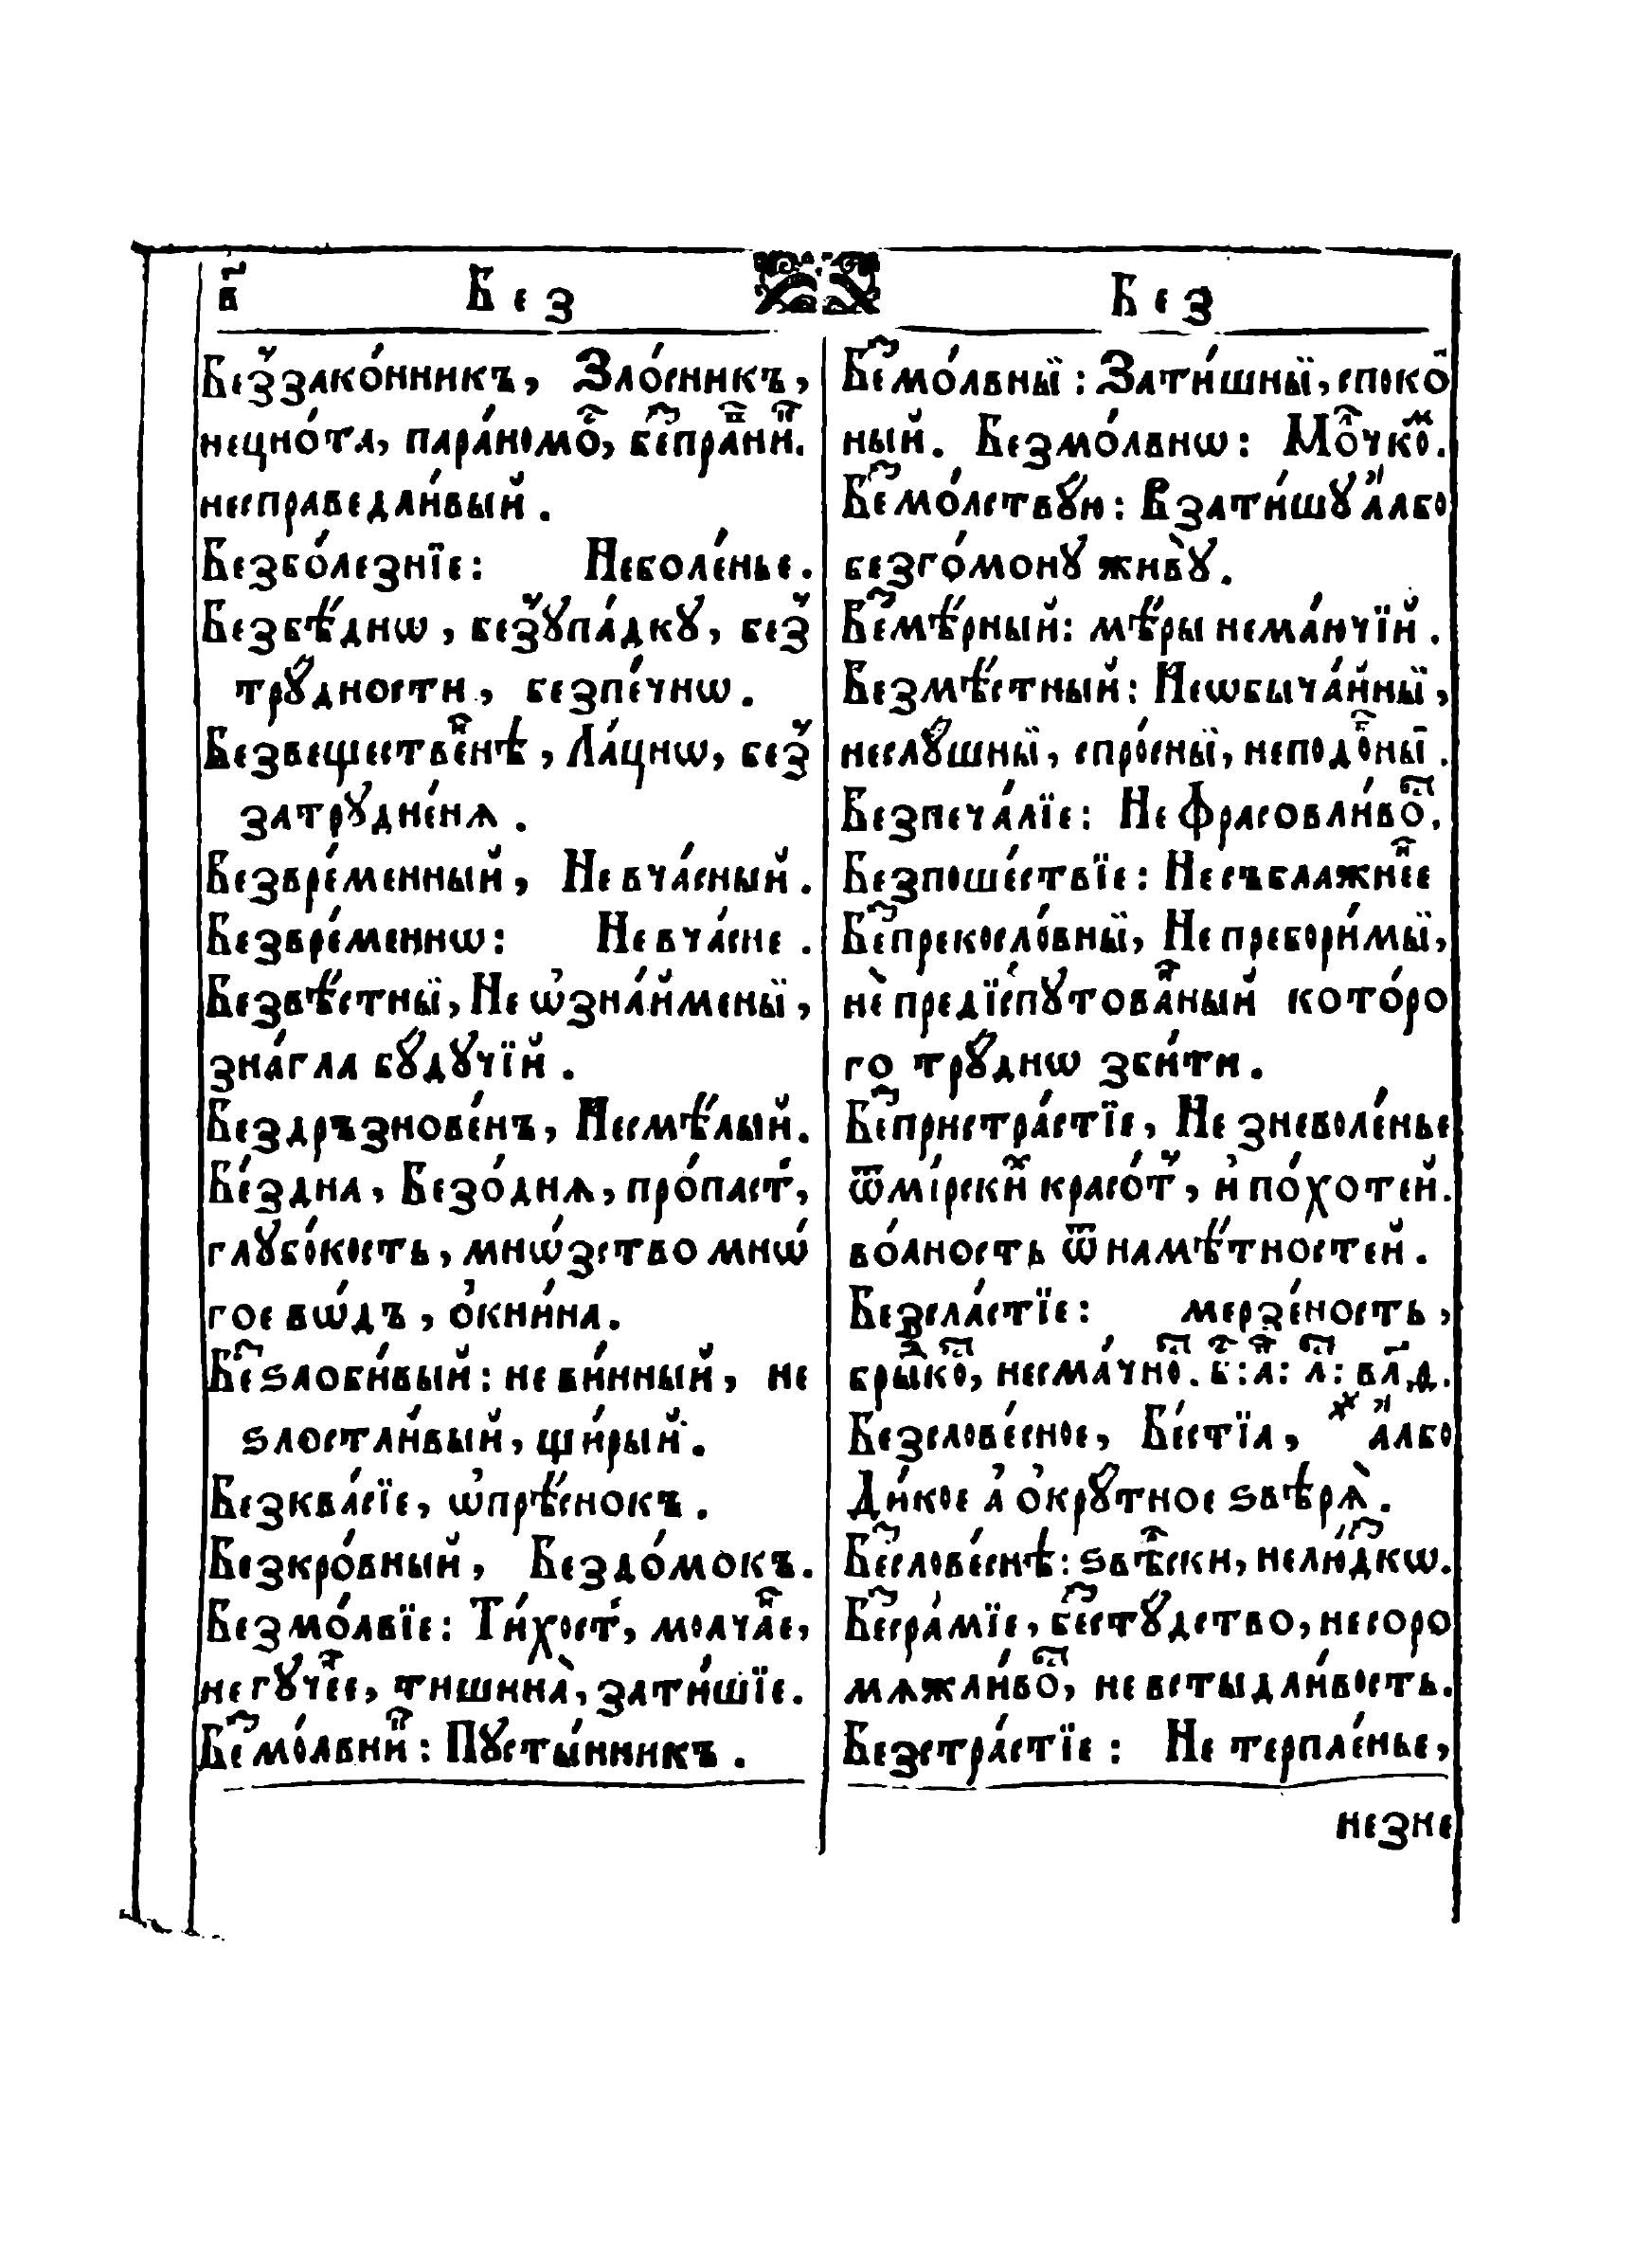 в҃ Без
Без
Без̾зако́нникъ, Зло́сникъ,
нецно́та, пара́номо̑, бе̑пра̑ни̑.
несправедли́вый.
Безбо́лезнїе: Неболе́нье.
Безбѣ́днѡ, без̾ꙋпа́дкꙋ, без̾
трꙋ́дности, безпе́чнѡ.
Безвеществе̑нѣ, Ла́цнѡ, без̾
затрꙋдне́нѧ.
Безвре́менный, Невча́сный.
Безвре́меннѡ: Невча́сне.
Безвѣ́стнӹ, Не ѡ҆зна́йменӹ,
зна́гла бꙋ́дꙋчїй.
Бездръзнове́нъ, Несмѣ́лый.
Бе́здна, Безо́днѧ, про́паст̾,
глꙋбо́кость, мнѡ́зство мнѡ́
гое вѡ́дъ, о҆кни́на.
Беⷥѕлоби́вый: неви́нный, не
ѕлостли́вый, щи́рый.
Безква́сїе, ѡ҆прѣ́снокъ.
Безкро́вный, Бездо́мокъ.
Безмо́лвїе: Ти́хост̾, молча́ⷩе,
негꙋ́чⷩее, тишина̀, зати́шїе.
Беⷥмо́лвниⷦ: Пꙋсты́нникъ.
Беⷥмо́лвнӹ: Зати́шнӹ, споко́
ный. Безмо́лвнѡ: Моⷧчкоⷨ.
Беⷥмо́лствꙋю: В затишꙋ а҆́лбо
безго́монꙋ живꙋ̀.
Беⷥмѣ́рный: мѣ́ры нема́ючїй.
Безмѣ́стный: Неѡбыча́йнӹ,
неслꙋ́шнӹ, спро́снӹ, неподо́ⷠнӹ.
Безпеча́лїе: Не фрасовли́воⷭ.
Безпоше́ствїе: Несъблажнⷩ́ие
Беⷥпрекосло́внӹ, Не преборимӹ,
нѐ предїспꙋтова́ⷩный кото́ро
го трꙋ́днѡ зби́ти.
Беⷥпристра́стїе, Не зневоле́нье
ѿмі́рскиⷯ красо́т̾, и҆ по́хотей.
во́лность ѿ намѣ́тностей.
Безсла́стїе: мерзе́ность,
брыⷣкоⷭ, несма́чноⷭ.
Безслове́сное, Бе́стїа, а҆́лбо
Ди́кое а҆ о҆крꙋ́тное ѕвѣрѧ̀.
Беⷥслове́снѣ: ѕвѣⷬски, нелю́дⷥкѡ.
Беⷥсра́мїе, беⷥстꙋ́дство, несоро
мѧжли́воⷭ, невстыдли́вость.
Безстра́стїе: Не терпле́нье,
незне